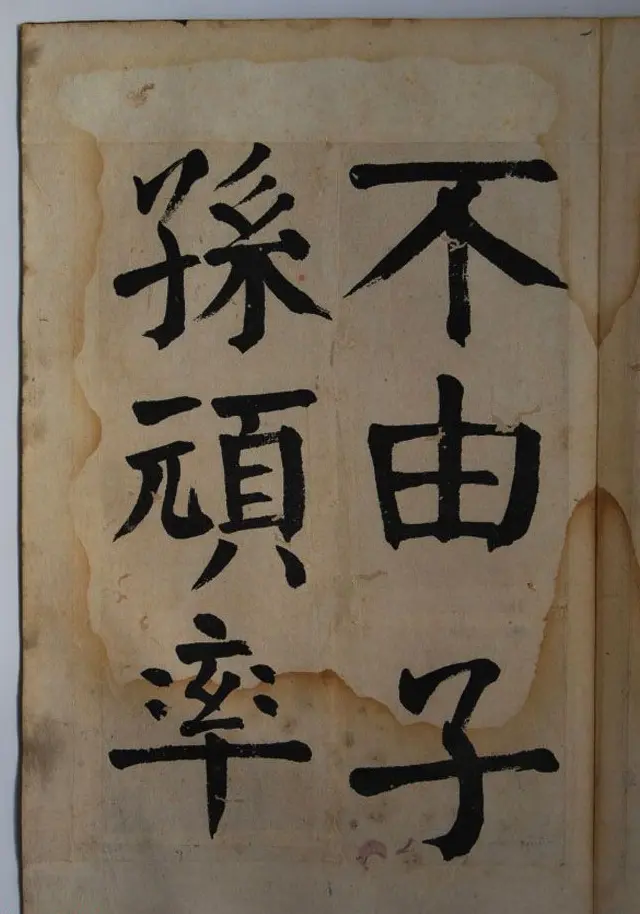 不由子
孫頑率